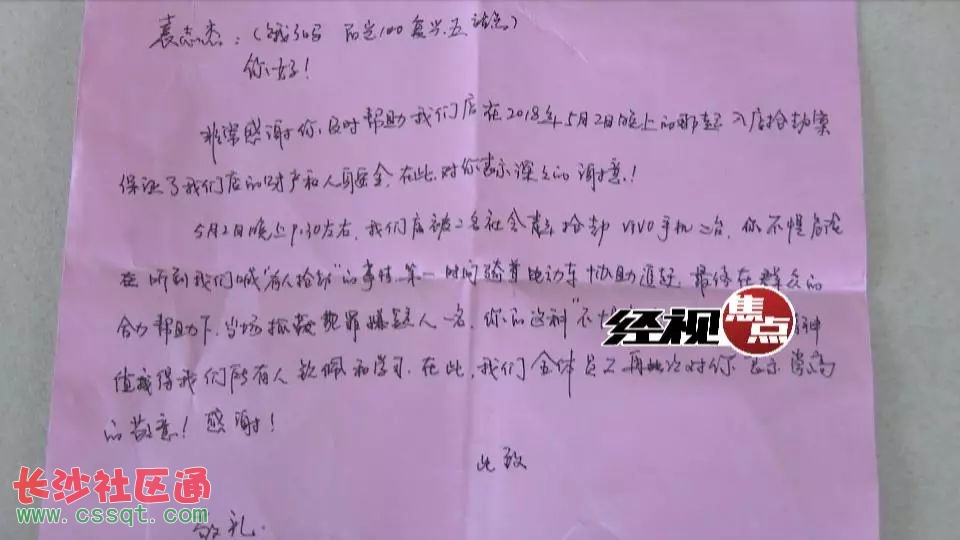 袁志杰：（饿了吗 后定100复兴五站点）
你好！
非常感谢你及时帮助我们店在2018年5月2日晚上的那起入店抢劫案
保证了我们店的财产和人员安全，在此，对你表示深深的谢意！
5月2日晚上9:30左右，我们店被2名社会青年抢劫VIVO手机2台，你不惧危险
在听到我们喊“有人抢劫”的事情，第一时间骑着电动车协助追赶，最终在群众的
合力帮助下，当场抓获犯罪嫌疑人一名，你的这种“不 精神
值得我们所有人钦佩和学习，在此，我们全体员工再此次对你表示崇高
的敬意！感谢！
此致
敬礼.
经视焦点
长沙社区通
www.cssqt.com